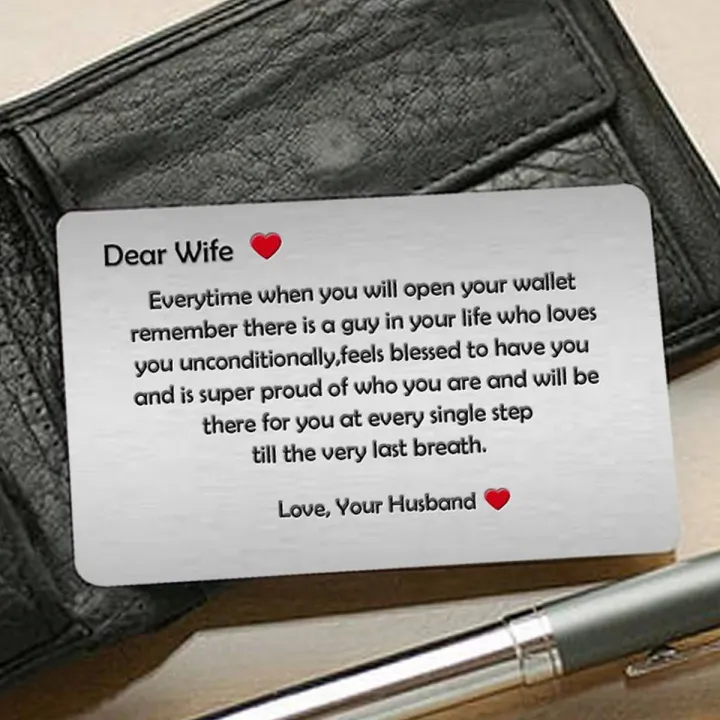 Dear Wife ❤
Everytime when you will open your wallet
remember there is a guy in your life who loves
you unconditionally,feels blessed to have you
and is super proud of who you are and will be
there for you at every single step
till the very last breath.
Love, Your Husband ❤